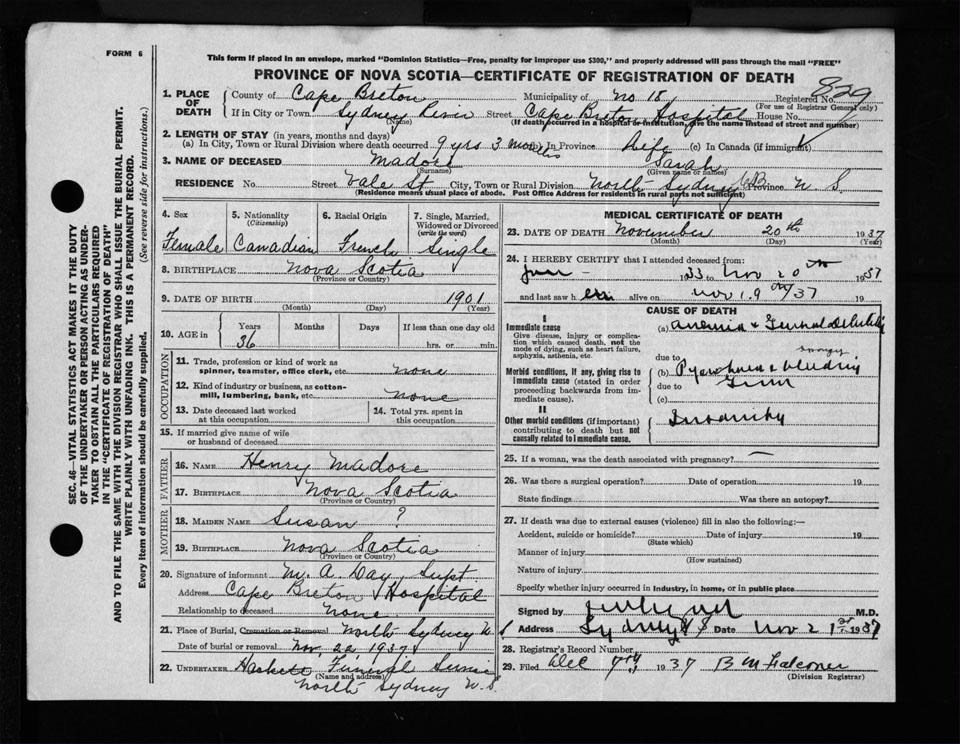 FORM 6
This form if placed in an envelope, marked "Dominion Statistics—Free, penalty for improper use $300," and properly addressed will pass through the mail "FREE"
PROVINCE OF NOVA SCOTIA—CERTIFICATE OF REGISTRATION OF DEATH
829
SEC. 46—VITAL STATISTICS ACT MAKES IT THE DUTY
OF THE UNDERTAKER OR PERSON ACTING AS UNDER-
TAKER TO OBTAIN ALL THE PARTICULARS REQUIRED
IN THE "CERTIFICATE OF REGISTRATION OF DEATH"
AND TO FILE THE SAME WITH THE DIVISION REGISTRAR WHO SHALL ISSUE THE BURIAL PERMIT.
WRITE PLAINLY WITH UNFADING INK. THIS IS A PERMANENT RECORD.
Every item of information should be carefully supplied. (See reverse side for instructions.)
1. PLACE OF DEATH
County of Cape Breton Municipality of No 18 Registered No.
(For use of Registrar General only)
If in City or Town Sydney River Street Cape Breton Hospital House No.
(Name) (If death occurred in a hospital or institution, give the name instead of street and number)
2. LENGTH OF STAY (in years, months and days)
(a) In City, Town or Rural Division where death occurred 9 yrs 3 months In Province Life (c) In Canada (if immigrant)
3. NAME OF DECEASED Madore Sarah
(Surname) (Given name or names)
RESIDENCE No. Street Vale St City, Town or Rural Division North Sydney CB Province N. S.
(Residence means usual place of abode. Post Office Address for residents in rural parts not sufficient)
4. Sex 5. Nationality 6. Racial Origin 7. Single, Married,
(Citizenship) Widowed or Divorced
(write the word)
Female Canadian French Single
8. BIRTHPLACE Nova Scotia
(Province or Country)
9. DATE OF BIRTH 1901
(Month) (Day) (Year)
10. AGE in Years Months Days If less than one day
36 hrs. or min.
OCCUPATION
11. Trade, profession or kind of work as
spinner, teamster, office clerk, etc. none
12. Kind of industry or business, as cotton-
mill, lumbering, bank, etc. none
13. Date deceased last worked 14. Total yrs. spent in
at this occupation this occupation
15. If married give name of wife
or husband of deceased
FATHER
16. NAME Henry Madore
17. BIRTHPLACE Nova Scotia
(Province or Country)
MOTHER
18. MAIDEN NAME Susan ?
19. BIRTHPLACE Nova Scotia
(Province or Country)
20. Signature of informant M. A. Day, Supt
Address Cape Breton Hospital
Relationship to deceased none
21. Place of Burial, Cremation or Removal North Sydney N. S
Date of burial or removal Nov. 22, 1937
22. UNDERTAKER Funeral
(Name and address)
North Sydney N. S.
MEDICAL CERTIFICATE OF DEATH
23. DATE OF DEATH November 20th 1937
(Month) (Day) (Year)
24. I HEREBY CERTIFY that I attended deceased from
1933 to Nov 20th 1937
and last saw her alive on Nov 19th/37 19
CAUSE OF DEATH
I
Immediate cause
Give disease, injury or complica-
tion which caused death, not the
mode of dying, such as heart failure,
asphyxia, asthenia, etc.
(a) Anemia & General Debility
due to
Morbid conditions, if any, giving rise to
immediate cause (stated in order
proceeding backwards from im-
mediate cause).
spongy
(b) Pyorrhoea & bleeding
due to Gums
(c)
II
Other morbid conditions (if important)
contributing to death but not
causally related to immediate cause.
Insanity
25. If a woman, was the death associated with pregnancy? —
26. Was there a surgical operation? Date of operation 19
State findings Was there an autopsy?
27. If death was due to external causes (violence) fill in also the following:—
Accident, suicide or homicide? Date of injury 19
(State which)
Manner of injury
(How sustained)
Nature of injury
Specify whether injury occurred in industry, in home, or in public place
Signed by M.D.
Address Sydney N S Date Nov 21st 1937
28. Registrar's Record Number
29. Filed Dec 7th 1937 B M Falconer
(Division Registrar)